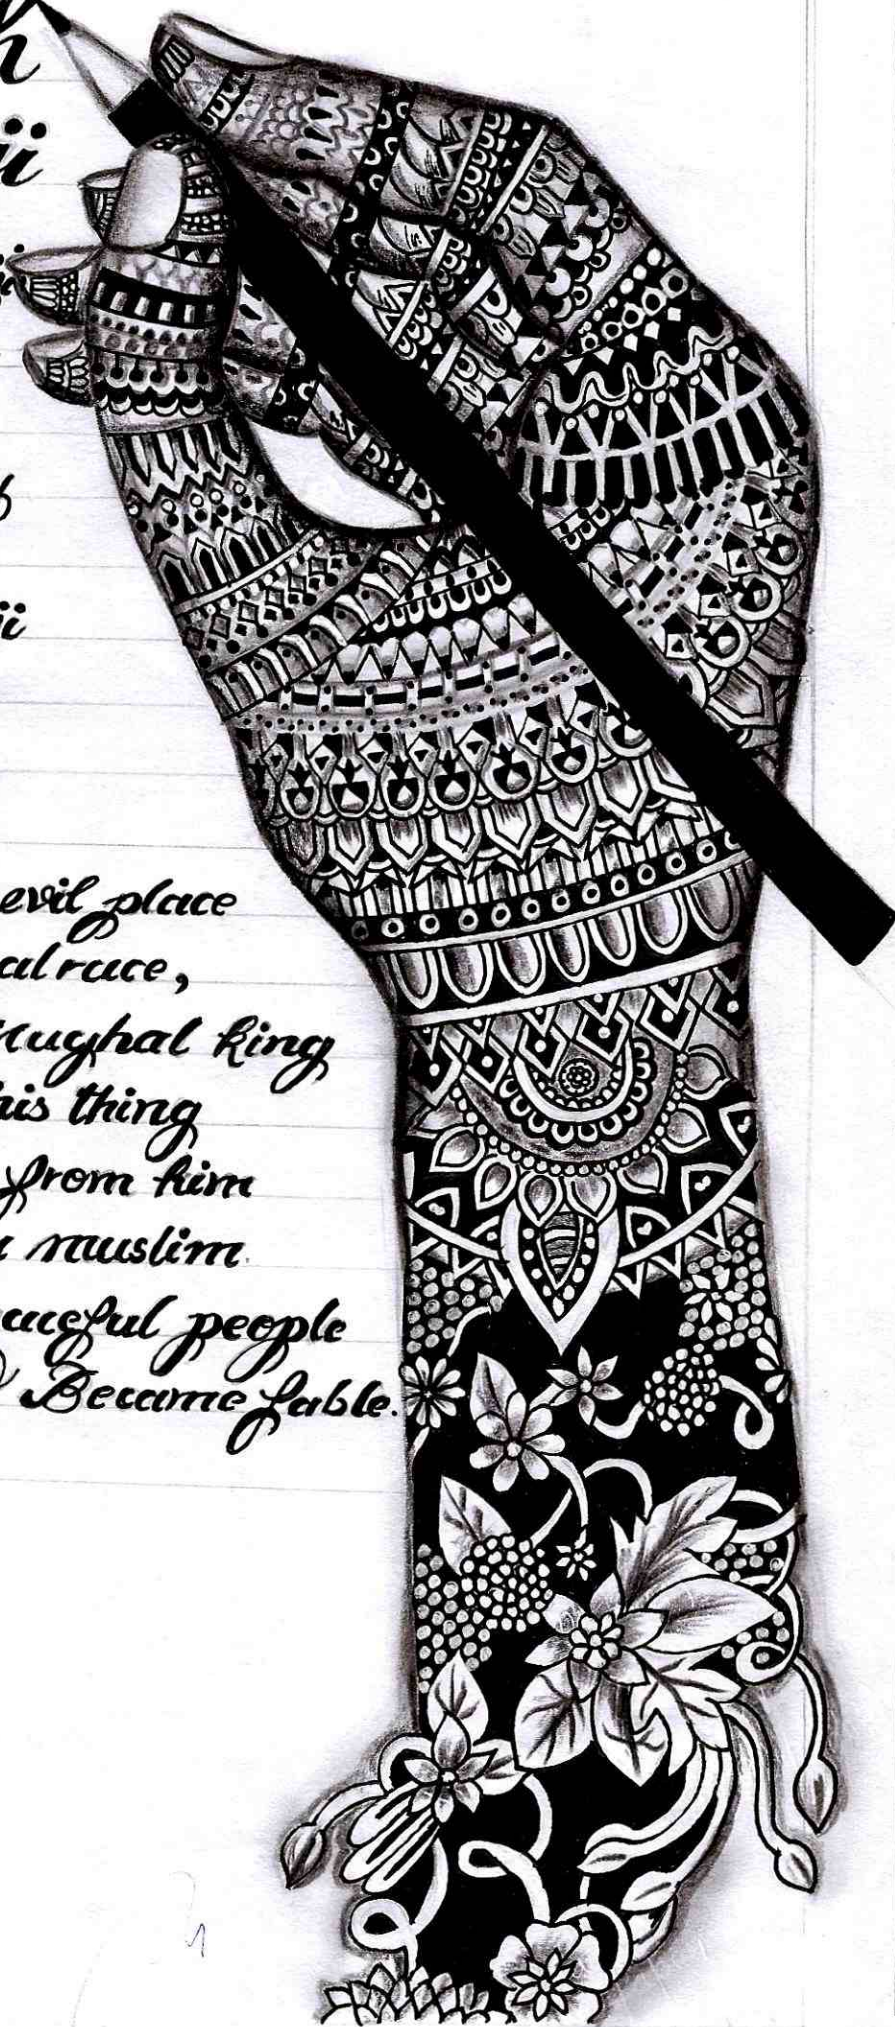 h
ii
ii
b
ii
evil place
al race,
ughal king
his thing
from him
a muslim.
aceful people
Became fable.